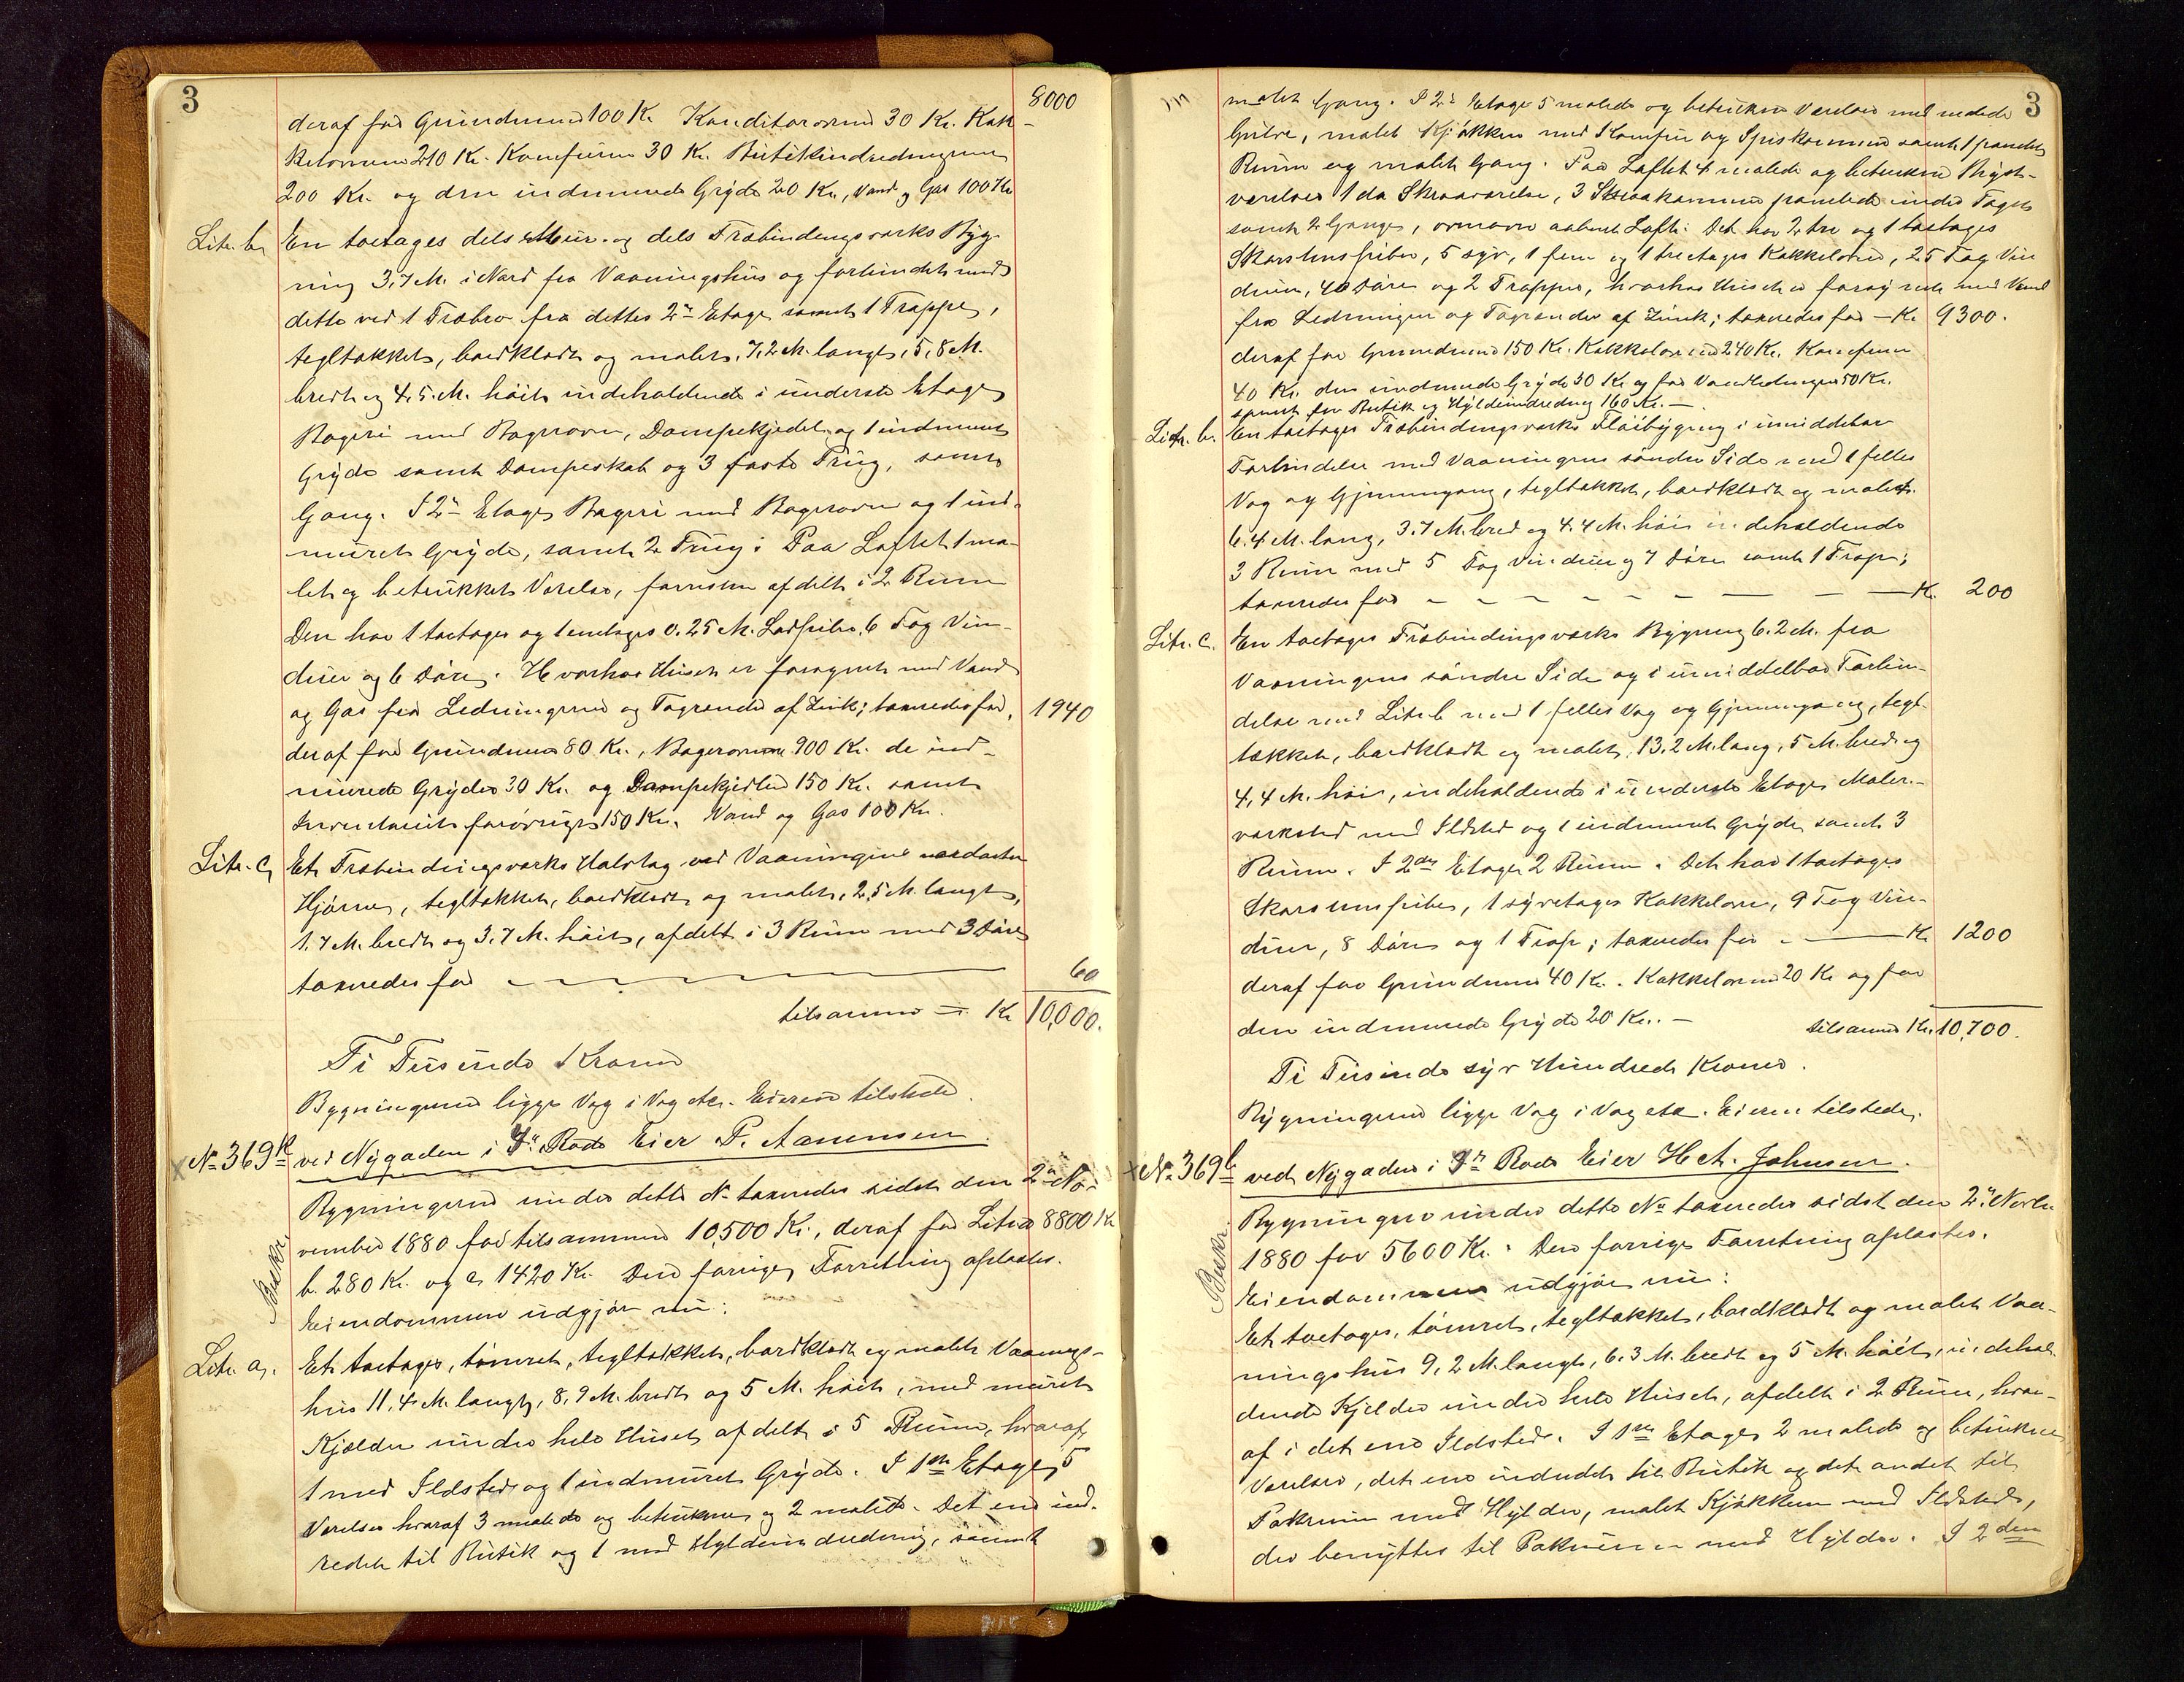 3
8000
deraf for Grundmuren 100 Kr. Konditorovnen 30 Kr. Kak-
kelovnene 210 Kr. Komfuren 30 Kr. Butikindredningerne
200 Kr. og den indmurede Gryde 20 Kr., Vand og Gas 100 Kr
Litr. b. En toetages dels Mur- og dels Træbindingsværks Byg-
ning 3,7 M. i Nord fra Vaaningshus og forbindet med
dette ved 1 Træbro fra dettes 2n Etage samt 1 Trappe,
tegltækket, bordklædt og malet, 7,2 M. langt, 5,8 M.
bredt og 4,5 M. høit indeholdende i underste Etage
Bageri med Bagerovn, Dampekjedel og 1 indmuret
Gryde samt Dampeskab og 3 faste Trug, samt
Gang. I 2n Etage Bageri med Bagerovn og 1 ind-
muret Gryde, samt 2 Trug; Paa Loftet 1 ma-
let og betrukket Værelse, forresten afdelt i 2 Rum
Den har 1 toetages og 1 enetages 0.25 M. Lodpibe, 6 Fag Vin-
duer og 6 Døre. Hvorhos Huset er forsynet med Vand
og Gas fra Ledningerne og Tagrender af Zink; taxeredes for, 1940
deraf for Grundmur 80 Kr., Bagerovnene 900 Kr. de ind-
murede Gryder 30 Kr. og Dampekjedlen 150 Kr. samt
Inventariet forøvrigt 150 Kr. Vand og Gas 100 Kr.
Litr. c. Et Træbindingsværks Halvtag ved Vaaningens nordøstre
Hjørne, tegltækket, bordklædt og malet, 2,5 M. langt,
1,7 M. bredt og 3,7 M. høit, afdelt i 3 Rum med 3 Døre
taxeredes for 60
tilsammen = Kr 10,000.
Ti Tusinde Kroner
Bygningerne ligge Væg i Væg etc. Eieren tilstede.
x No 369k ved Nygaden i 9n Rode Eier P. Aanensen.
Bygningerne under dette No taxeredes sidst den 2n No-
vember 1880 for tilsammen 10,500 Kr., deraf for Litr. a 8800 Kr
b. 280 Kr. og c. 1420 Kr. Den forrige Forretning aflæstes.
Beskr.
Eiendommen udgjør nu:
Litr. a. Et toetages, tømret, tegltækket, bordklædt og malet Vaanings-
hus 11,4 M. langt, 8,9 M. bredt og 5 M. høit, med muret
Kjælder under hele Huset afdelt i 5 Rum, hvoraf
1 med Ildsted og 1 indmuret Gryde. I 1ste Etage 5
Værelser hvoraf 3 malede og betrukne og 2 malede. Det ene ind-
redet til Butik og 1 med Hyldeindredning, samt
3
malet Gang. I 2n Etage 5 malede og betrukne Værelser med malede
Gulve, malet Kjøkken med Komfur og Spiskammer samt 1 panelet
Rum og malet Gang. Paa Loftet 4 malede og betrukne Kvist-
værelser 1 do Skraaværelse, 3 Skraakammer panelede under Taget
samt 2 Gange, ovenover aabent Loft. Det har 2 tre og 1 toetages
Skorstenspiber, 5 syv, 1 fem og 1 treetages Kakkelovne, 25 Fag Vin
duer, 40 Døre og 2 Trapper, hvorhos Huset er forsynet med Vand
fra Ledningen og Tagrender af Zink; taxeredes for — Kr. 9300.
deraf for Grundmuren 150 Kr. Kakkelovnene 240 Kr. Komfuren
40 Kr. den indmurede Gryde 30 Kr. og for Vandledningen 50 Kr.
samt for Butik og Hyldeindredning 160 Kr. —
Litr. b. En toetages Træbindingsværks Fløibygning i umiddelbar
Forbindelse med Vaaningens søndre Side med 1 fælles
Væg og Gjennemgang, tegltækket, bordklædt og malet.
6.4 M. lang, 3.7 M. bred og 4.4 M. høi indeholdende
3 Rum med 5 Fag Vinduer og 7 Døre samt 1 Trap;
taxeredes for — Kr. 200
Litr. c. En toetages Træbindingsværks Bygning 6.2 M. fra
Vaaningens søndre Side og i umiddelbar Forbin-
delse med Litr b med 1 fælles Væg og Gjennemgang, tegl-
tækket, bordklædt og malet, 13.2 M. lang, 5 M. bred og
4,4 M. høi, indeholdende i underste Etage Maler-
værksted med Ildsted og 1 indmuret Gryde samt 3
Rum. I 2den Etage 2 Rum. Det har 1 toetages
Skorstenspibe, 1 syvetages Kakkelovn, 9 Fag Vin-
duer, 8 Døre og 1 Trap; taxeredes for — Kr 1200
deraf for Grundmuren 40 Kr. Kakkelovnen 20 Kr og for
den indmurede Gryde 20 Kr. —
tilsammen Kr. 10,700.
Ti Tusinde syv Hundrede Kroner.
Bygningerne ligge Væg i Væg etc. Eieren tilstede.
x No 369l ved Nygaden i 9n Rode Eier H. A. Johnsen.
Bygningen under dette No taxeredes sidst den 2n Novbr
1880 for 5600 Kr. Den forrige Forretning aflæstes.
Beskr.
Eiendommen udgjør nu:
Et toetages, tømret, tegltækket, bordklædt og malet Vaa-
ningshus 9,2 M. langt, 6.3 M. bredt og 5 M. høit, indehol-
dende Kjelder under hele Huset, afdelt i 2 Rum, hvor-
af i det ene Ildsted. I 1ste Etage 2 malede og betrukne
Værelser, det ene indredet til Butik og det andet til
Pakrum med Hylder, malet Kjøkken med Ildsted,
der benyttes til Pakrum med Hylder. I 2den